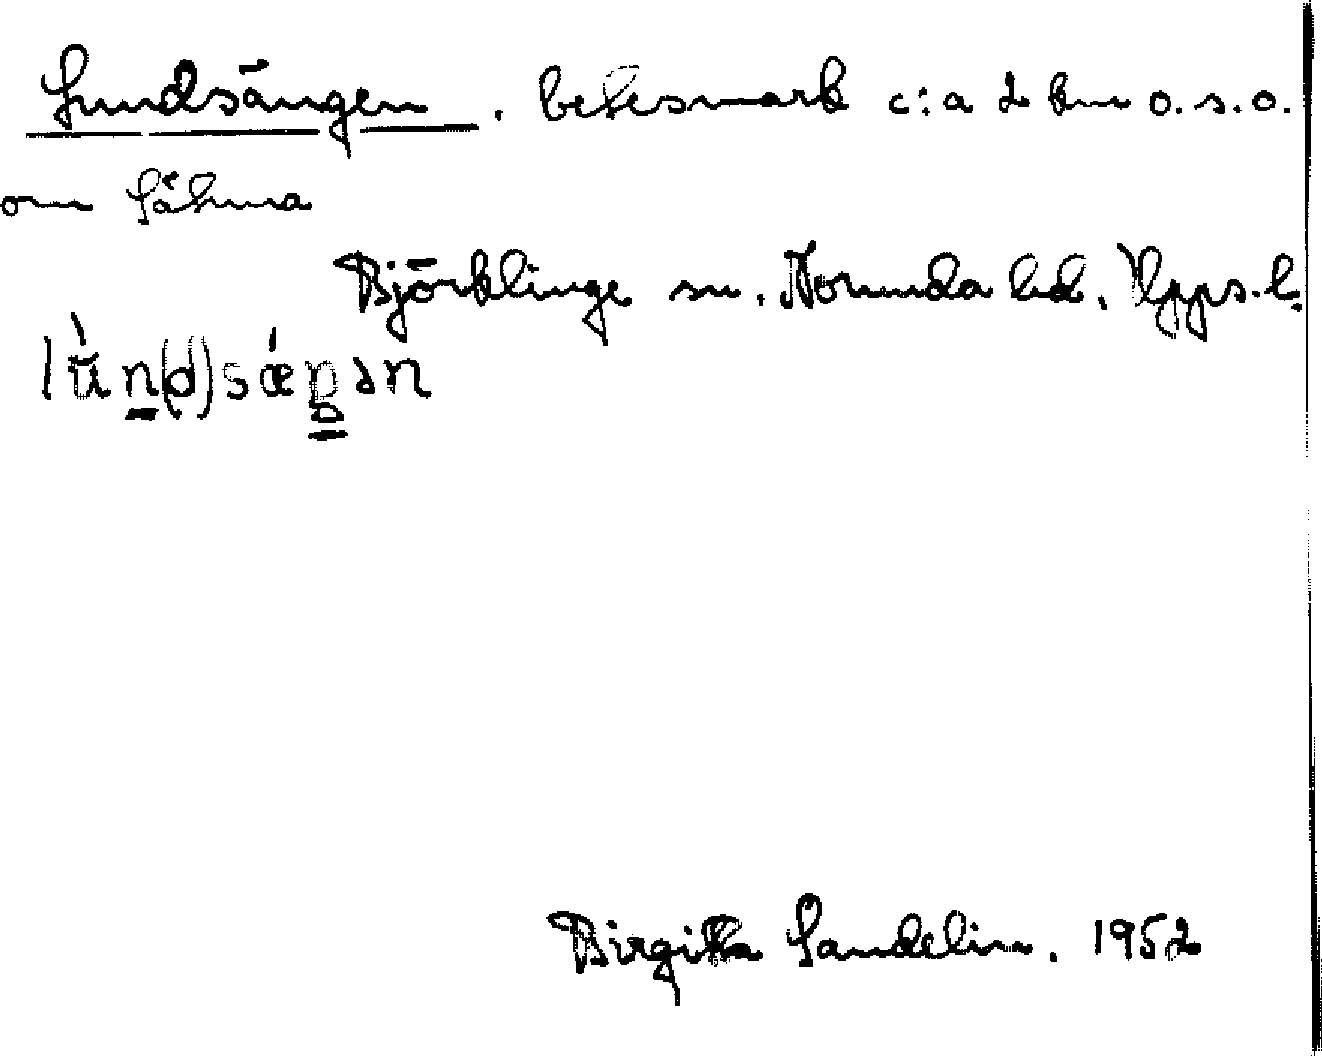 Lundsängen. betesmark c:a 2 km o.s.o.
om Såhma
Björklinge sn. Norunda hd. Upps. l.
lùn(d)sǽŋən
Birgitta Sandelin. 1952